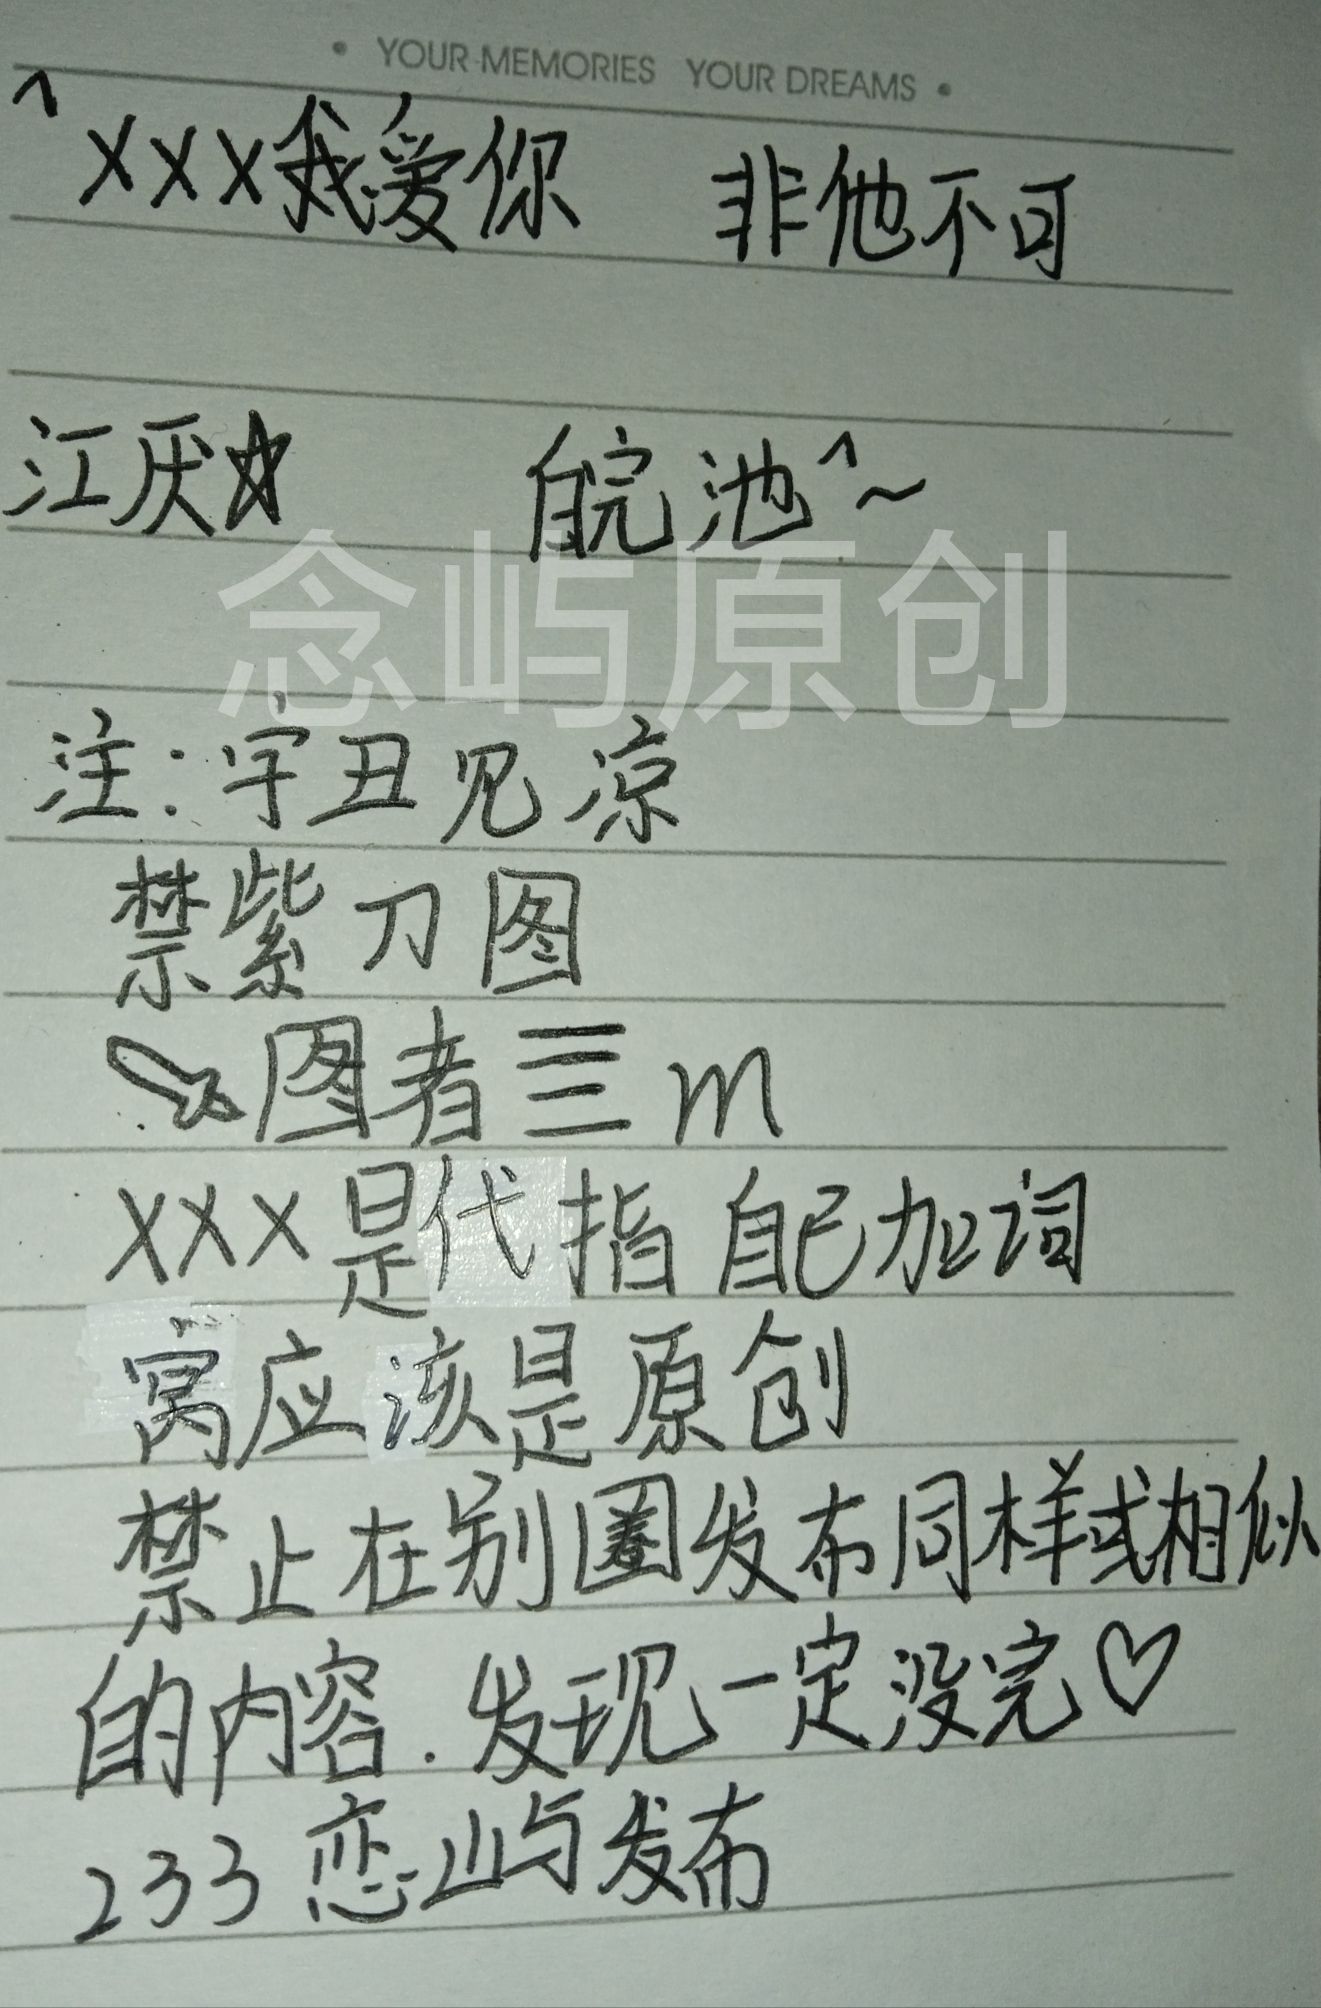 • YOUR MEMORIES YOUR DREAMS •
^xxx我爱你 非他不可
江厌☆ 皖池^~
念屿原创
注:字丑见凉
禁紫刀图
图者亖m
xxx是代指自己加词
窝应该是原创
禁止在别圈发布同样或相似
的内容.发现一定没完♡
233恋屿发布